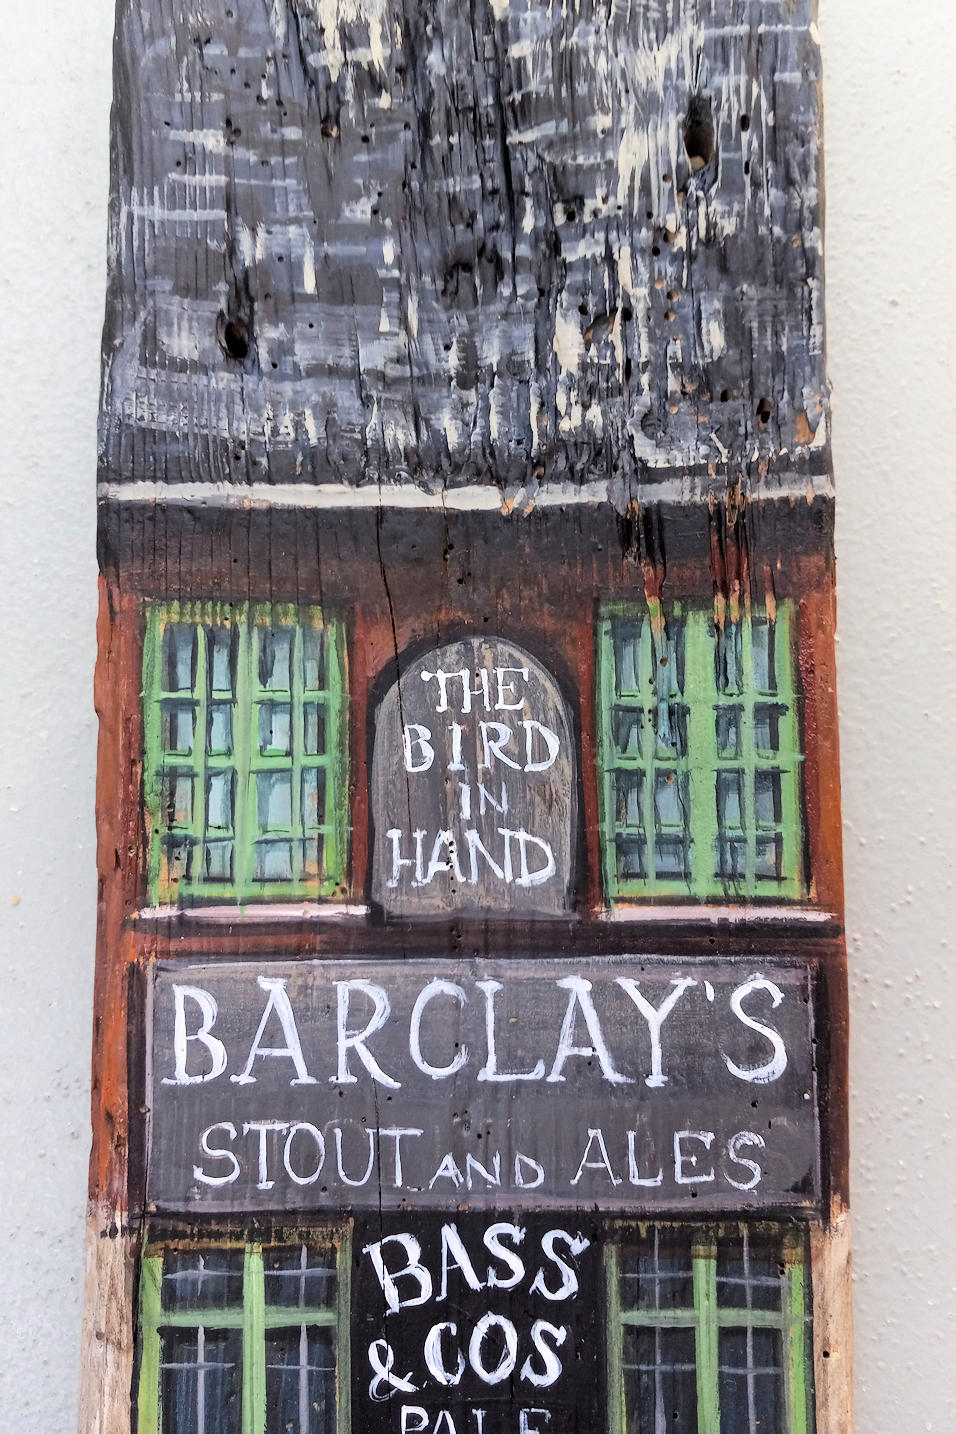 THE
BIRD
IN
HAND
BARCLAY'S
STOUT AND ALES
BASS
& COS
PALE